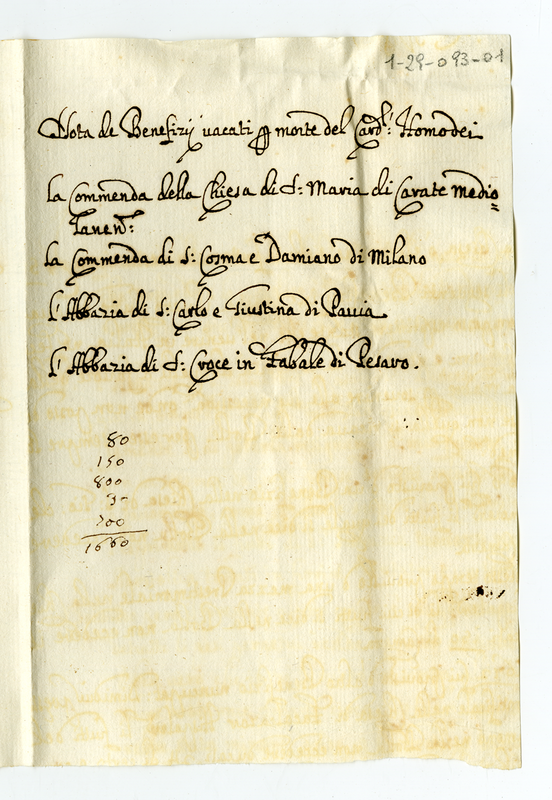 1-29-093-01
Nota de Benefizij vacati p morte del Card.l: Homodei
la Commenda della Chiesa di S: Maria di Carate Medio=
lanen:
la Commenda di S: Cosma e Damiano di Milano
l'Abbazia di S: Carlo e Giustina di Pavia
l'Abbazia di S: Croce in Fabale di Pesaro.
80
150
800
30
1660